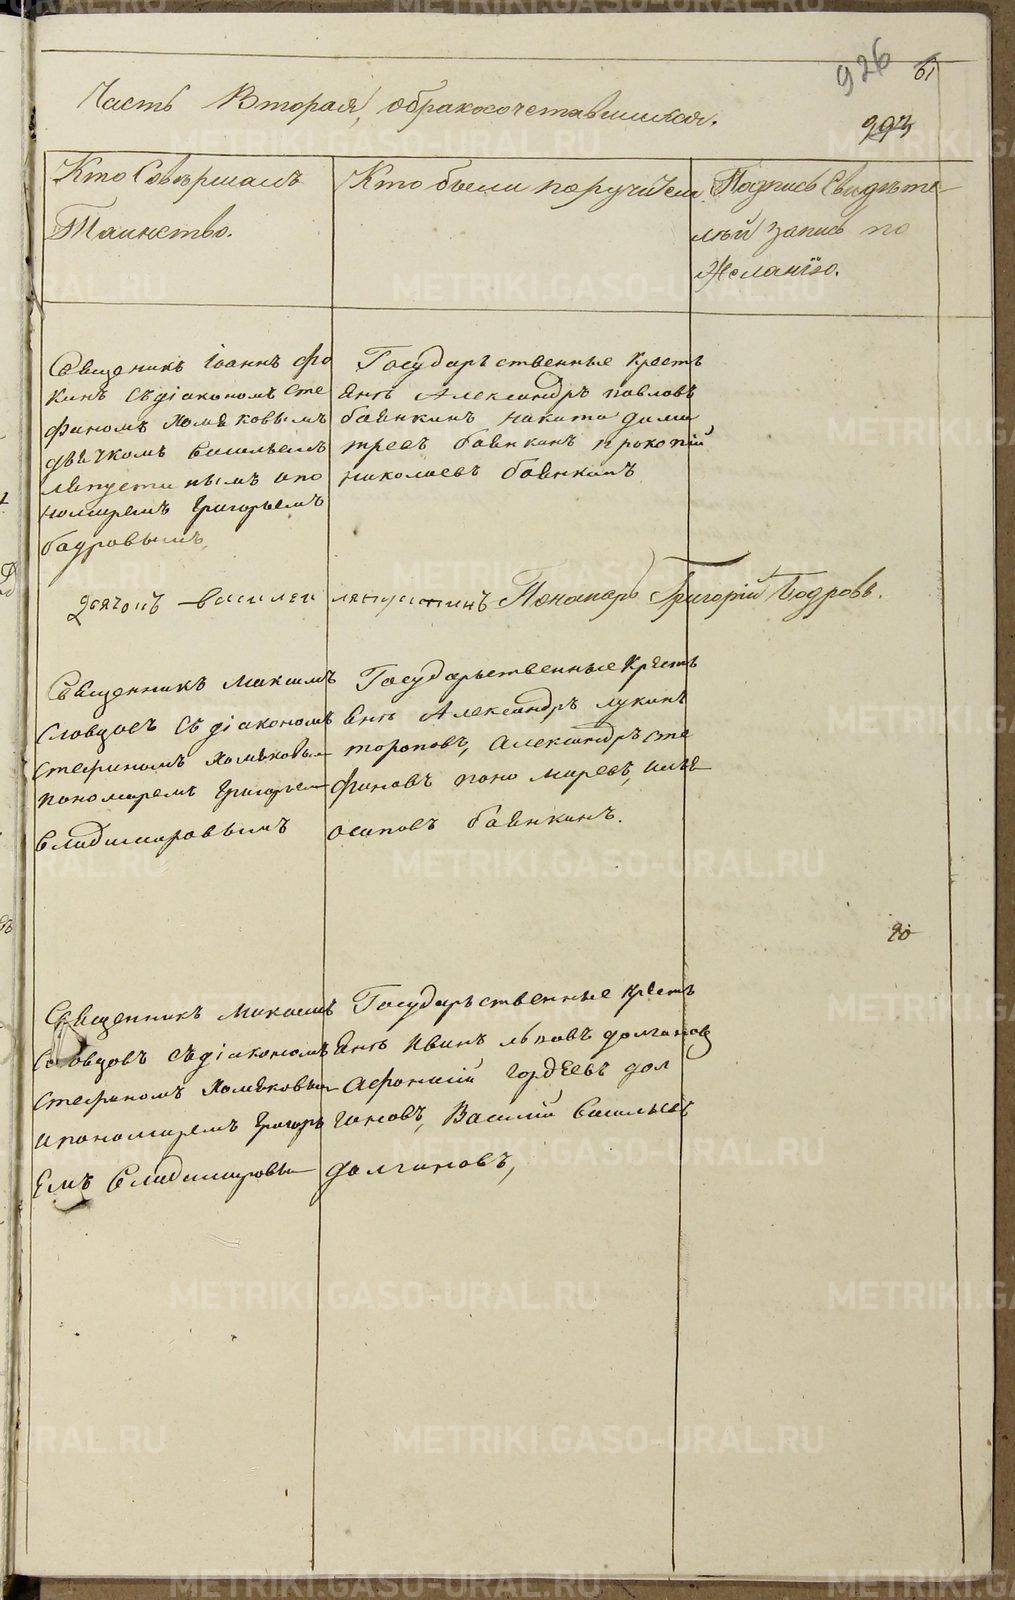 926
61
293
Часть Вторая, обракосочетавшихся.
Кто Совершалъ
Таинство.
Кто были поручители
Подпись Свидѣте-
лей запись по
Желанію.
Священикъ Іоаннъ Фо
кинъ Съдіакономъ Сте
фаномъ Хомяковымъ
дьячкомъ Васильемъ
ляпустинымъ ипо
номаремъ Григорьемъ
бодровымъ,
Государственные крестъ
янъ Александръ павловъ
баянкинъ никита дими
треевъ баянкинъ прокопій
николаевъ баянкинъ
Дьячокъ василей ляпустинъ Пономарь Григорій Бодровъ.
Священникъ Максимъ
Словцовъ Съдіакономъ
стефаномъ Хомяковым
пономаремъ Григорьем
Владимировымъ
Государьственные Крестъ
янъ Александръ лукинъ
тороповъ, Александръ сте
фановъ пономаревъ,
осиповъ баянкинъ.
90
Священникъ Максимъ
Словцовъ Съдіакономъ
стефаномъ Хомяковым
ипономаремъ Григорь
емъ Владимировым
Государьственные крестъ
янъ Иванъ львовъ долгановъ
Афонасій гордеевъ дол
гановъ, Василій Васильевъ
долгановъ,
METRIKI.GASO-URAL.RU